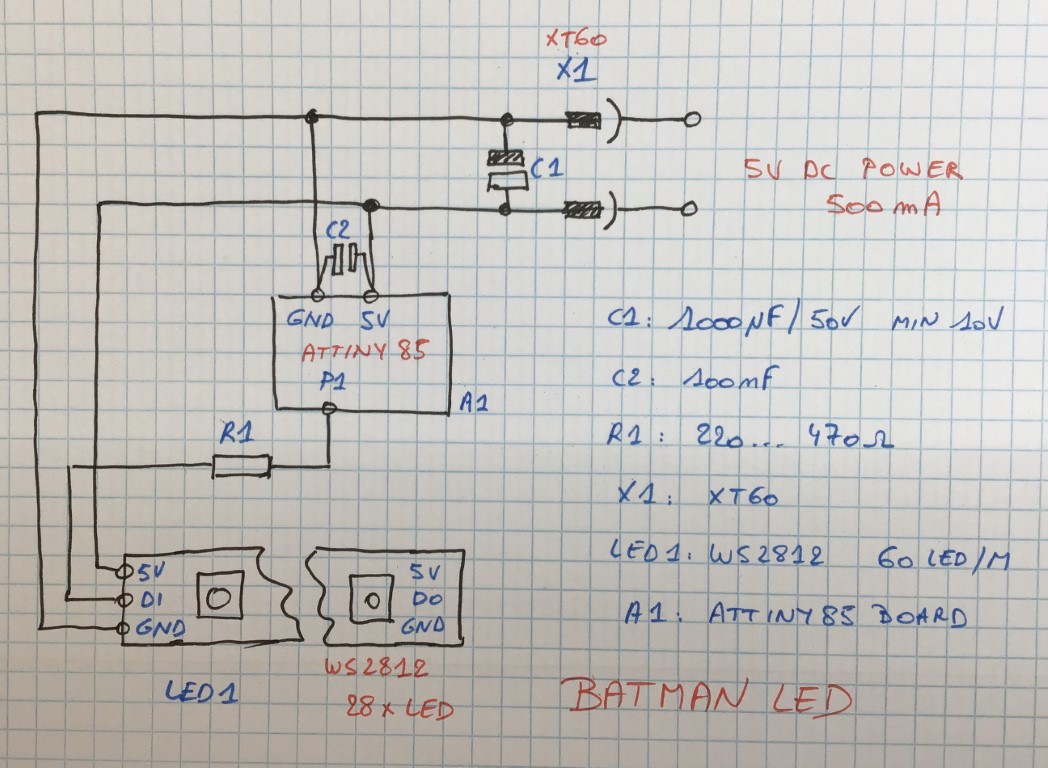 XT60
X1
C1
5V DC POWER
500mA
C2
GND 5V
ATTINY 85
P1
A1
R1
C1: 1000µF/50V MIN 10V
C2: 100mF
R1: 220... 470Ω
X1: XT60
LED1: WS2812 60 LED/M
A1: ATTINY85 BOARD
5V
DI
GND
5V
DO
GND
LED1
WS2812
28 x LED
BATMAN LED